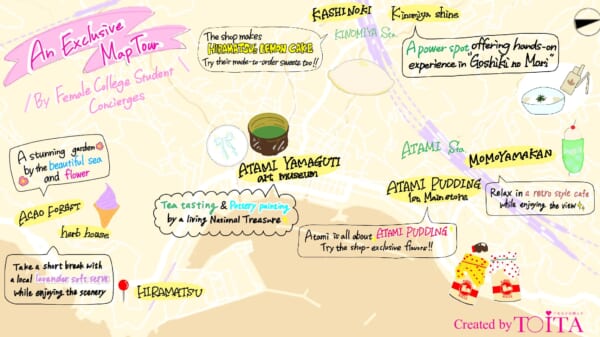 An Exclusive
Map Tour
By Female College Student
Concierges
The shop makes
HIRAMATSU LEMON CAKE
Try their made-to-order sweets too!!
KASHINOKI
KINOMIYA Sta.
Kinomiya shine
A power spot offering hands-on
experience in "Goshiki no Mori"
A stunning garden
by the beautiful sea
and flower
ACAO FOREST
herb house
Take a short break with
a local lavender soft serve
while enjoying the scenery
HIRAMATSU
ATAMI YAMAGUTI
art museum
Tea tasting & Pottery painting
by a living National Treasure
ATAMI Sta.
MOMOYAMAKAN
Relax in a retro style cafe
while enjoying the view
ATAMI PUDDING
1st Main store
Atami is all about ATAMI PUDDING
Try the shop-exclusive flavors!!
Created by TOITA